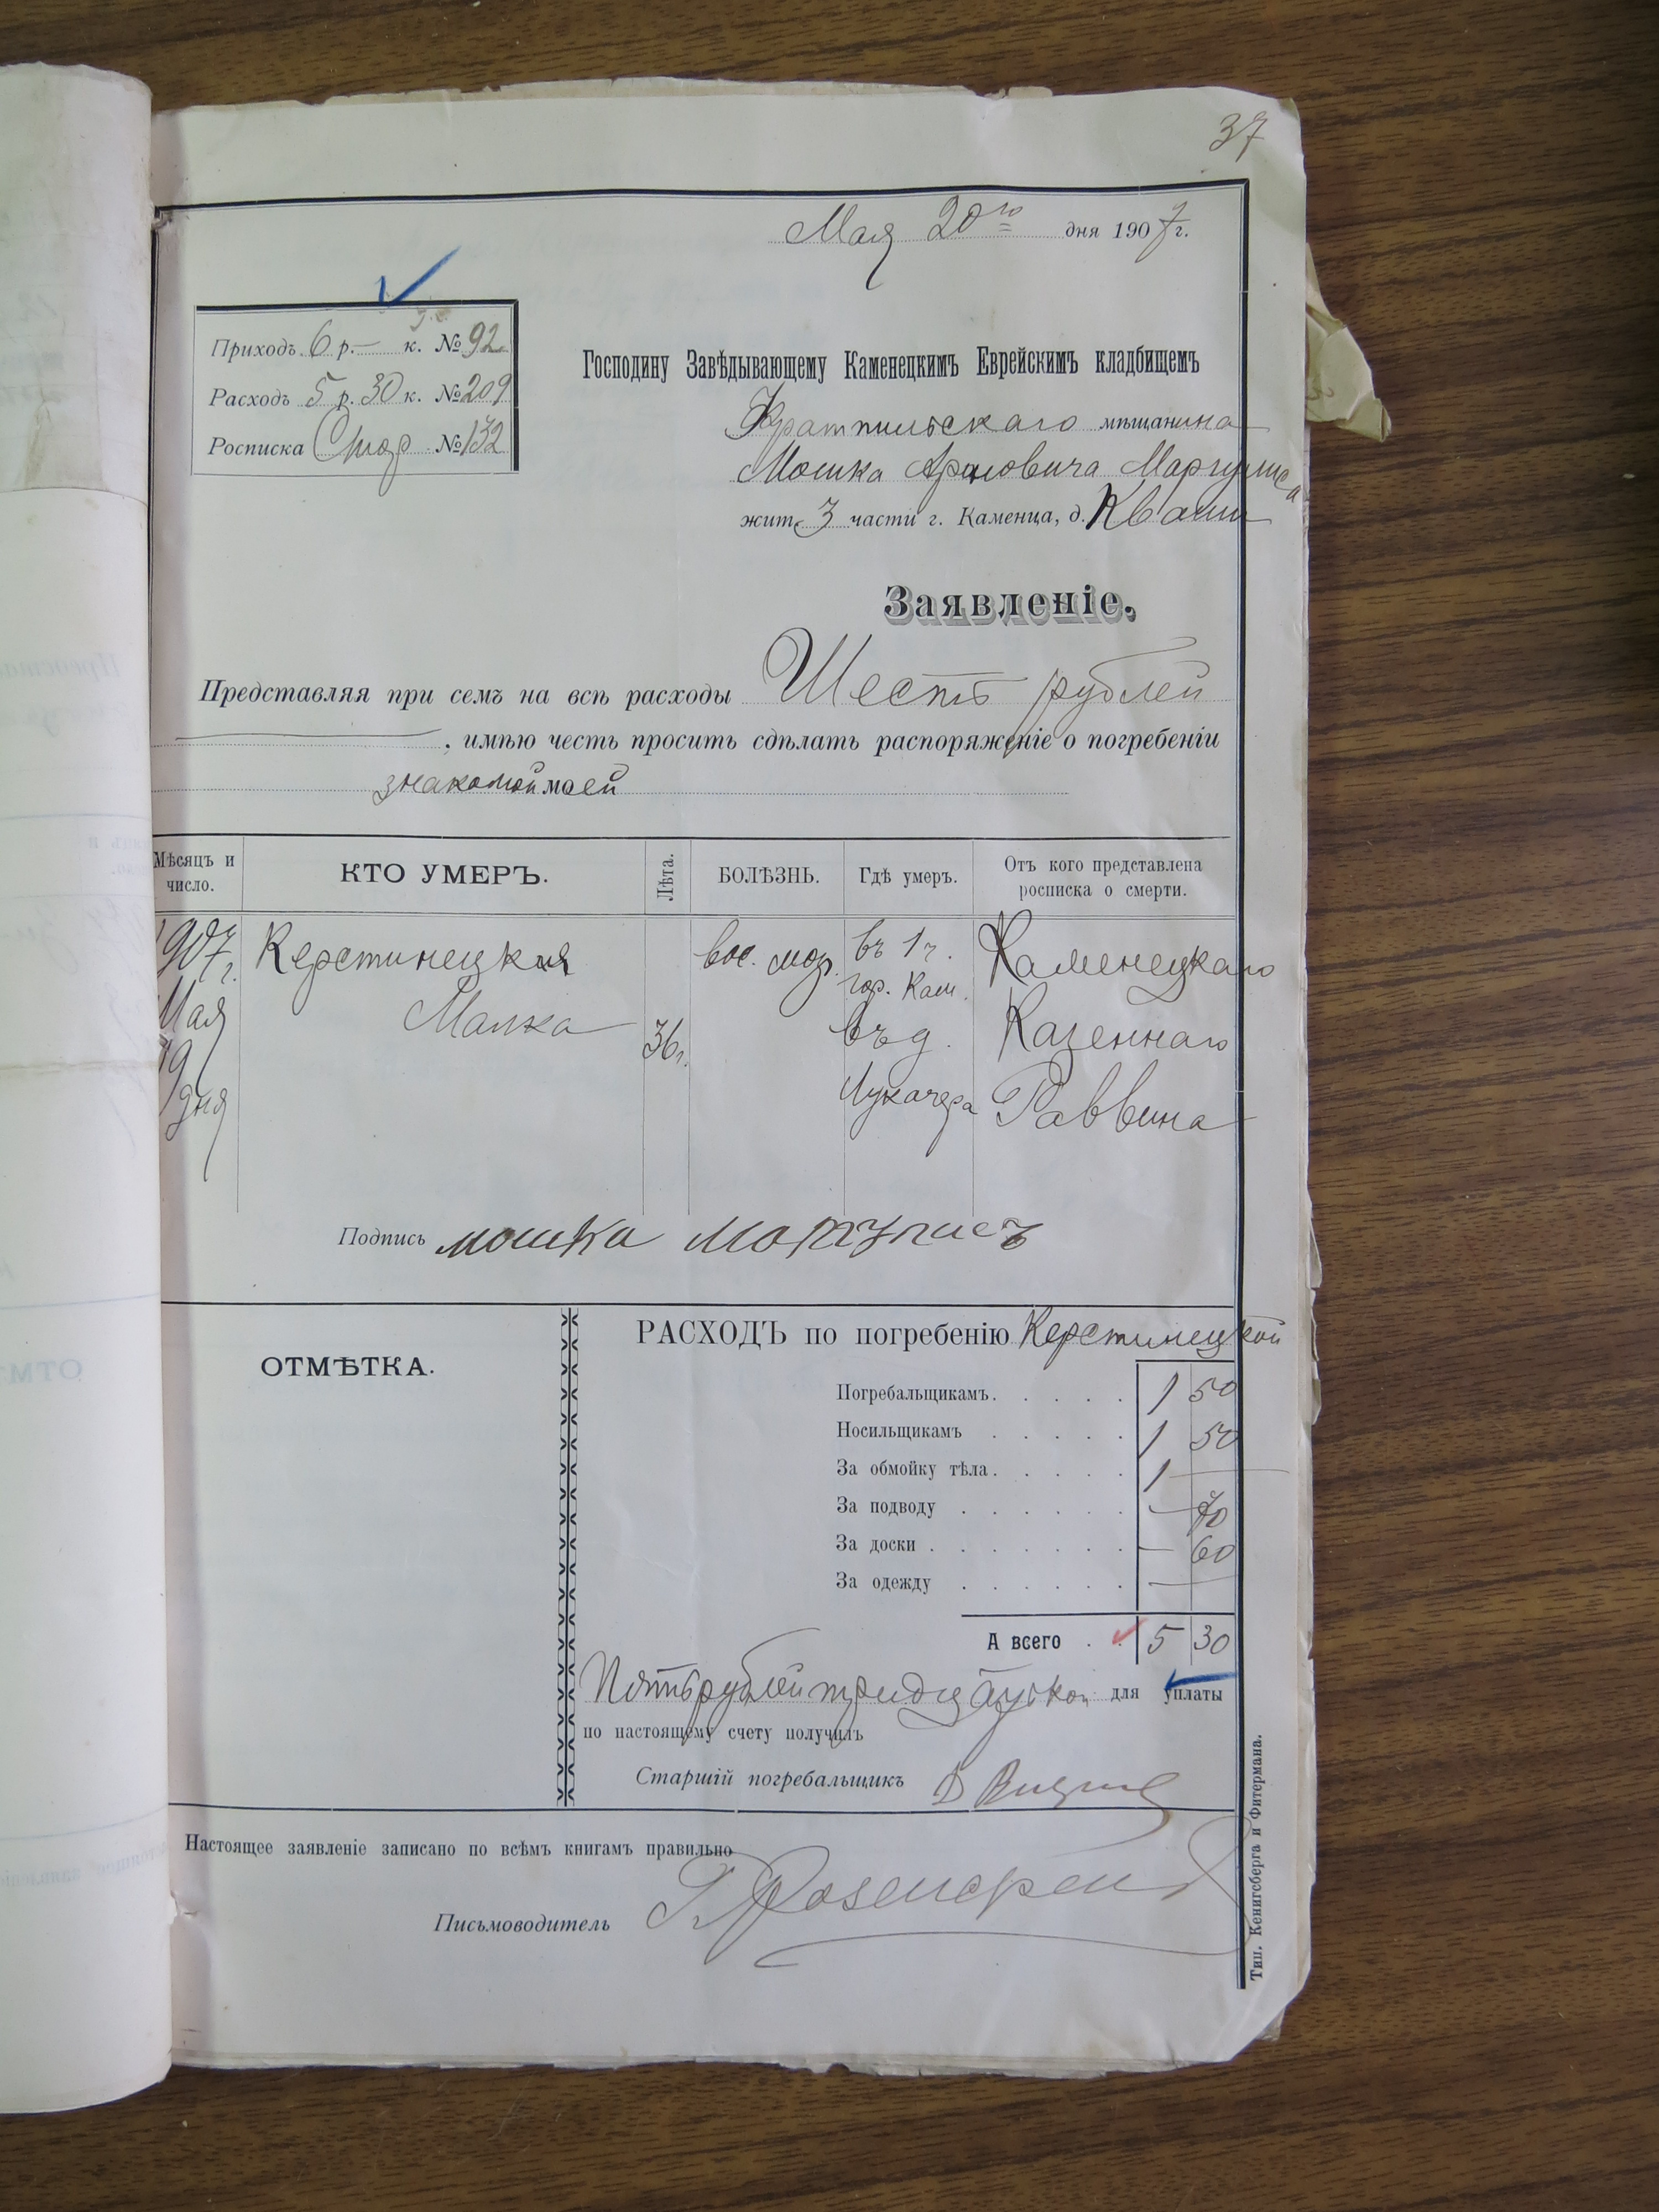 37
Мая 20го дня 1907 г.
Приходъ 6 р. — к. № 92
Расходъ 5 р. 30 к. № 209
Росписка № 132
Господину Завѣдывающему Каменецкимъ Еврейскимъ кладбищемъ
мѣщанина
Мошка Ароновича Маргулиса
жит. 3 части г. Каменца, д. Кваши
Заявленіе.
Представляя при семъ на всѣ расходы Шесть рублей
—, имѣю честь просить сдѣлать распоряженіе о погребеніи
знакомой моей
Мѣсяцъ и число. КТО УМЕРЪ. Лѣта. БОЛѢЗНЬ. Гдѣ умеръ. Отъ кого представлена росписка о смерти.
1907 г. Керстинецкая вос. мозг. въ 1 ч. Каменецкаго
гор. Кам.
Мая Малка 36 г. въ д. Казеннаго
19 дня Лукачера Раввина
Подпись мошка маргулисъ
ОТМѢТКА.
РАСХОДЪ по погребенію Керстинецкой
Погребальщикамъ. . . . . 1 50
Носильщикамъ . . . . . 1 50
За обмойку тѣла. . . . . 1 —
За подводу . . . . . . — 70
За доски . . . . . . . — 60
За одежду . . . . . . —
А всего . . 5 30
Пять рублей тридцать коп для уплаты
по настоящему счету получилъ
Старшій погребальщикъ
Настоящее заявленіе записано по всѣмъ книгамъ правильно
Письмоводитель
Тип. Кенигсберга и Фитермана.